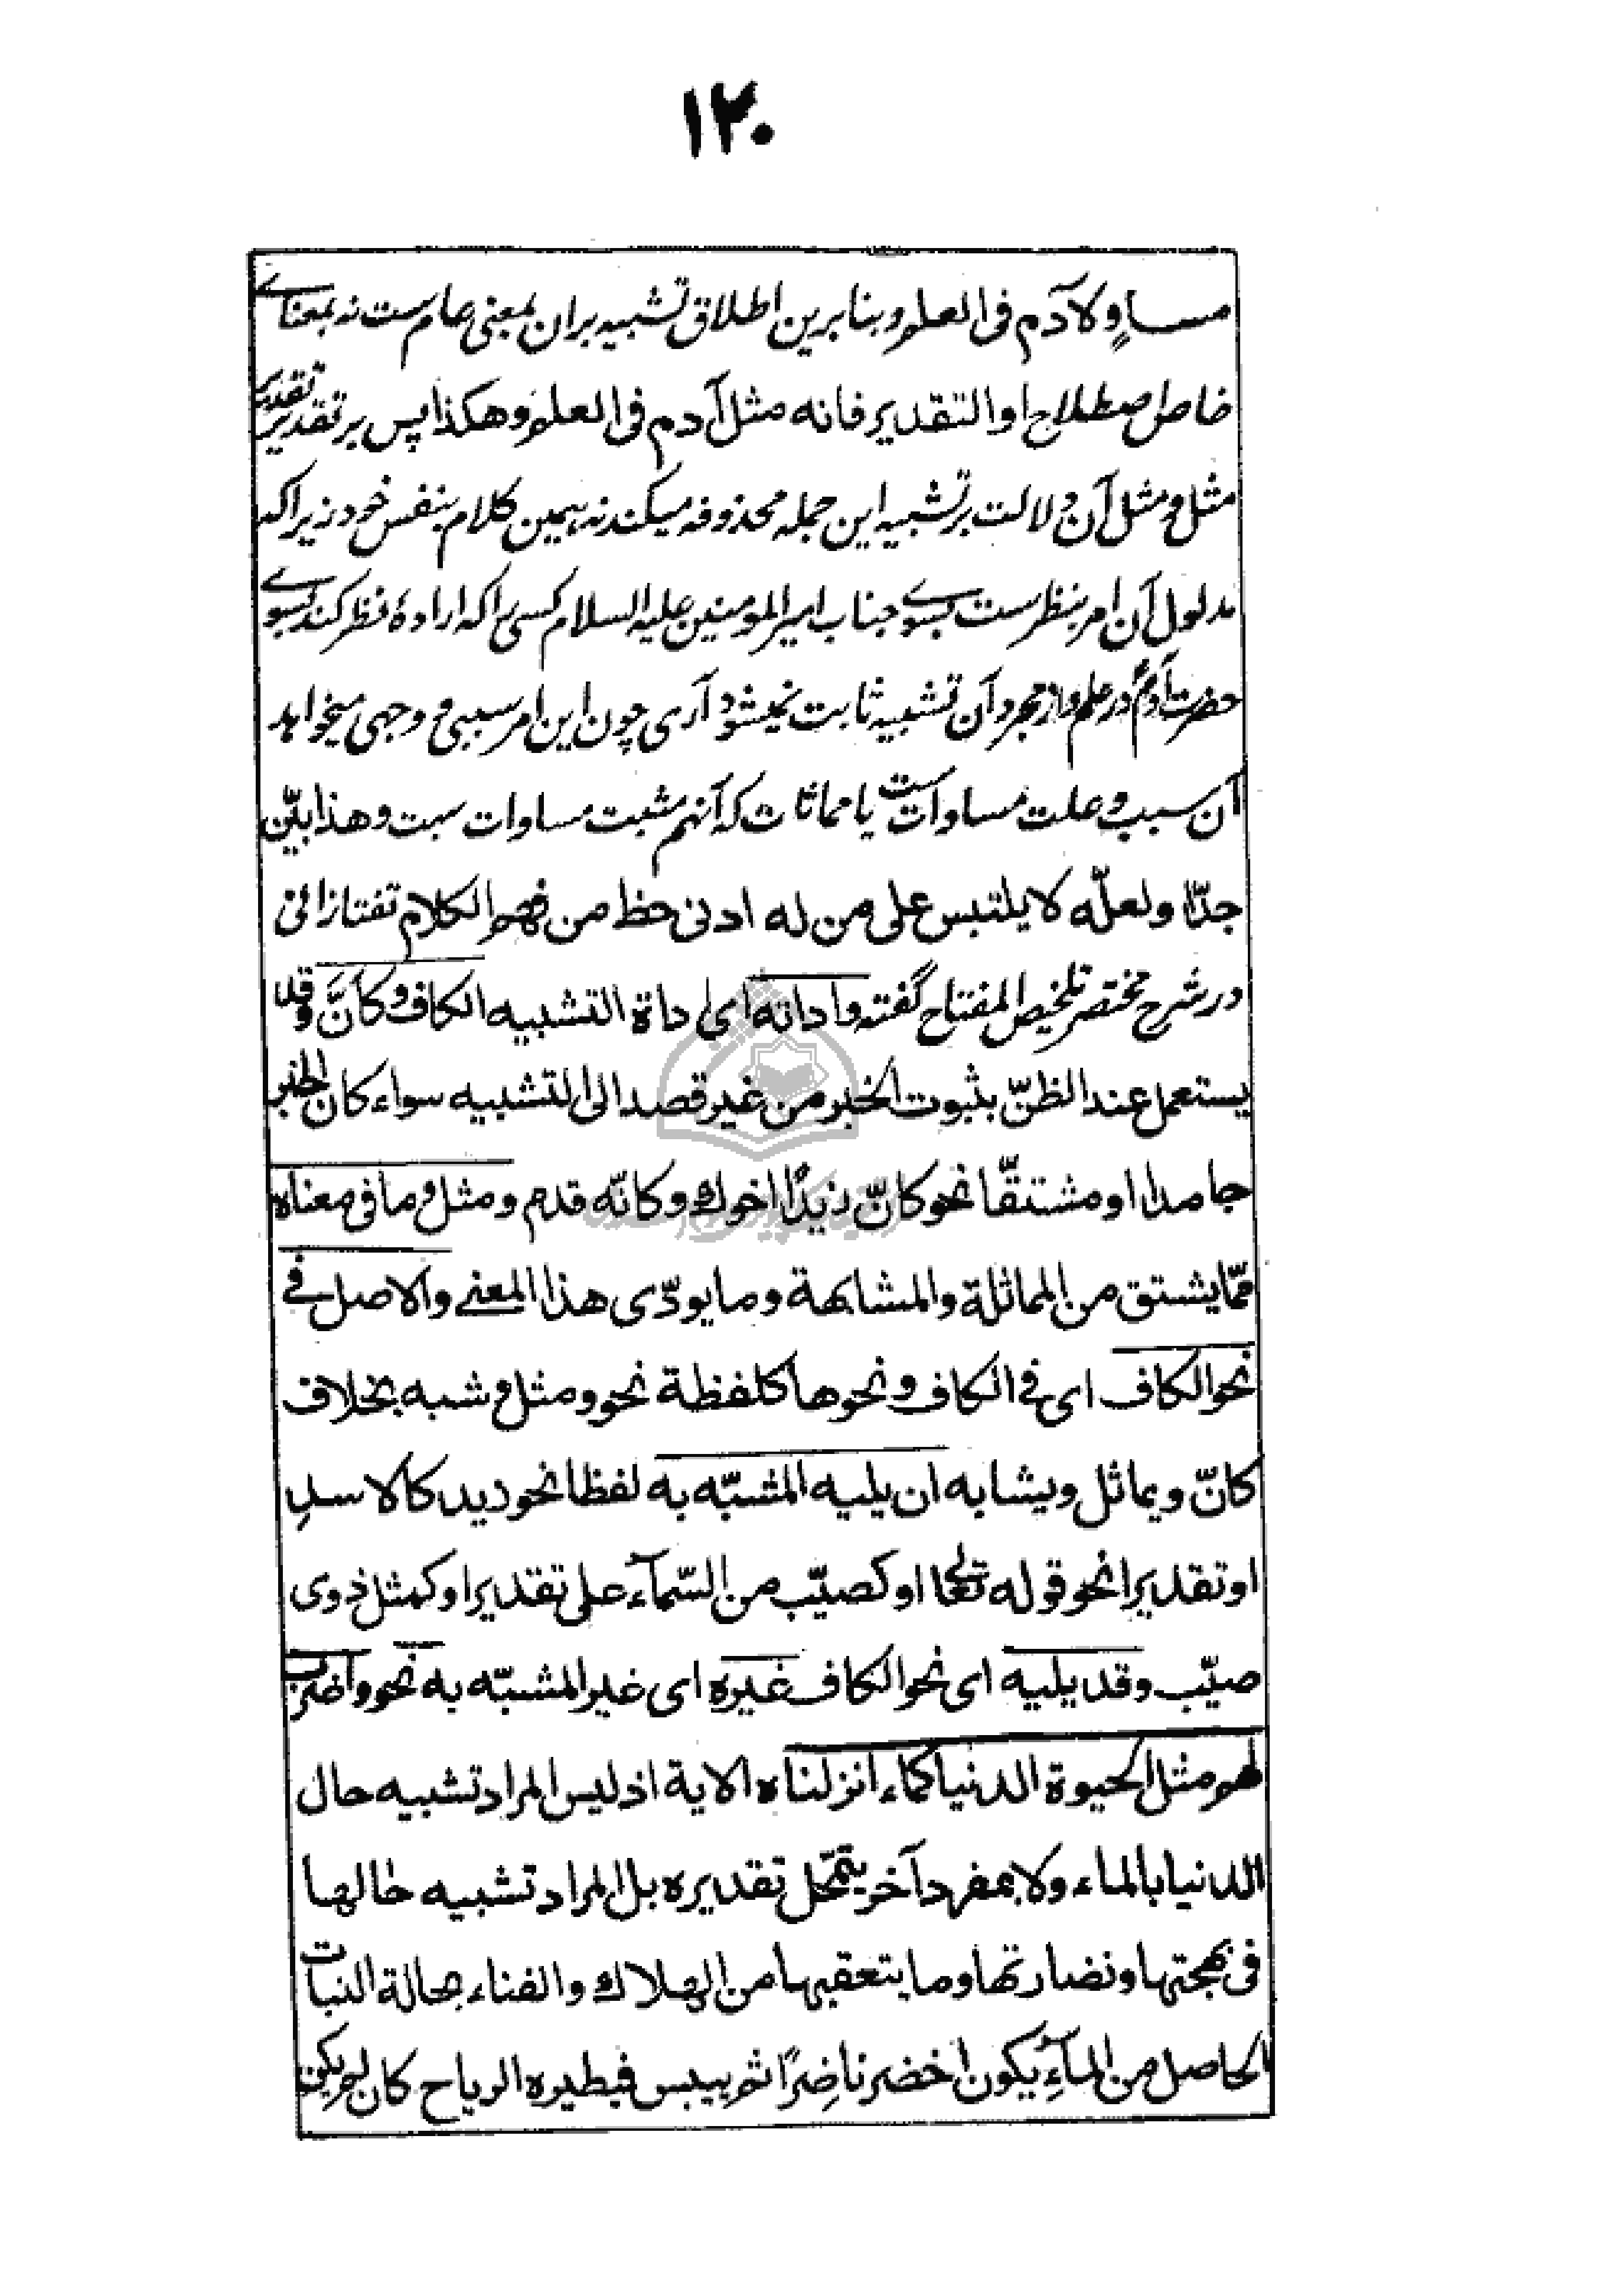 ۱۲۰
مساوٍ ولآدم فی العلم و بنابرین اطلاق تشبیه بران بمعنی عام ست نه بمعناے
خاص اصطلاح او التقدیر فانه مثل آدم فی العلم وهکذا پس بر تقدیر تقدیر
مثل و مثل آن دلالت بر تشبیه این جمله محذوفه میکند نه همین کلام بنفس خود زیراکه
مدلول آن امر بنظر ست بسوے جناب امیر المومنین علیه السلام کسی را که ارادهٔ نظر کند بسوے
حضرت آدمؑ در علم و از مجرد آن تشبیه ثابت نمیشود آری چون این امر سببی و وجهی میخواهد
آن سبب و علت مساوات ست یا مماثلت که آنهم مثبت مساوات ست وهذا بیّن
جدّا ولعلّه لا یلتبس علی من له ادنی حظ من فهم الکلام تفتازانی
در شرح مختصر تلخیص المفتاح گفته واداته ای اداة التشبیه الکاف وکأنَّ وقد
یستعمل عند الظنّ بثبوت الخبر من غیر قصد الی التشبیه سواء کان الخبر
جامدا او مشتقّا نحو کانّ زیدًا اخوك وکانّه قدم ومثل وما فی معناه
ممّا یشتق من المماثلة والمشابهة وما یودّی هذا المعنی والاصل فے
نحو الکاف ای فی الکاف ونحوها کلفظة نحو ومثل وشبه بخلاف
کانّ ویماثل ویشابه ان یلیه المشبّه به لفظا نحو زید کالاسدِ
او تقدیرا نحو قوله تعالی او کصیّب من السّمآء علی تقدیر او کمثل ذوی
صیّب وقد یلیه ای نحو الکاف غیره ای غیر المشبّه به نحو واضرب
لهم مثل الحیوة الدنیا کماء انزلناه الایة اذ لیس المراد تشبیه حال
الدنیا بالماء ولا بمفرد آخر یتمحّل تقدیره بل المراد تشبیه حالها
فی بهجتها ونضارتها وما یتعقبها من الهلاك والفناء بحالة النبات
الحاصل من المآءِ یکون اخضر ناضِرًا ثم ییبس فیطیره الریاح کان لم یکن